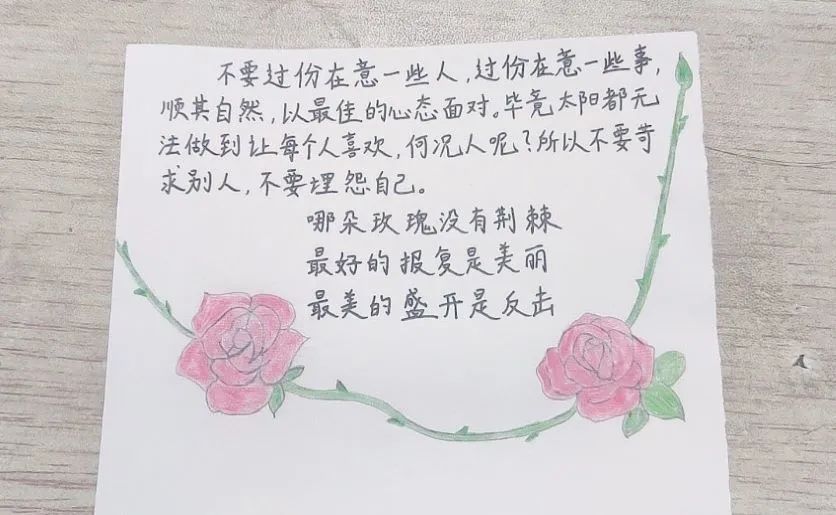 不要过份在意一些人，过份在意一些事，
顺其自然，以最佳的心态面对。毕竟太阳都无
法做到让每个人喜欢，何况人呢？所以不要苛
求别人，不要埋怨自己。
哪朵玫瑰没有荆棘
最好的报复是美丽
最美的盛开是反击